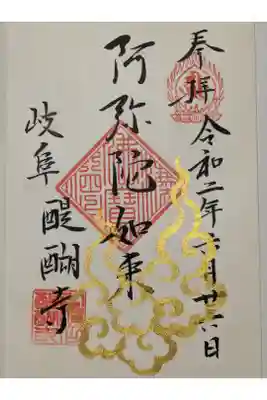 奉拝
令和二年六月廿六日
阿弥陀如来
岐阜 醍醐寺